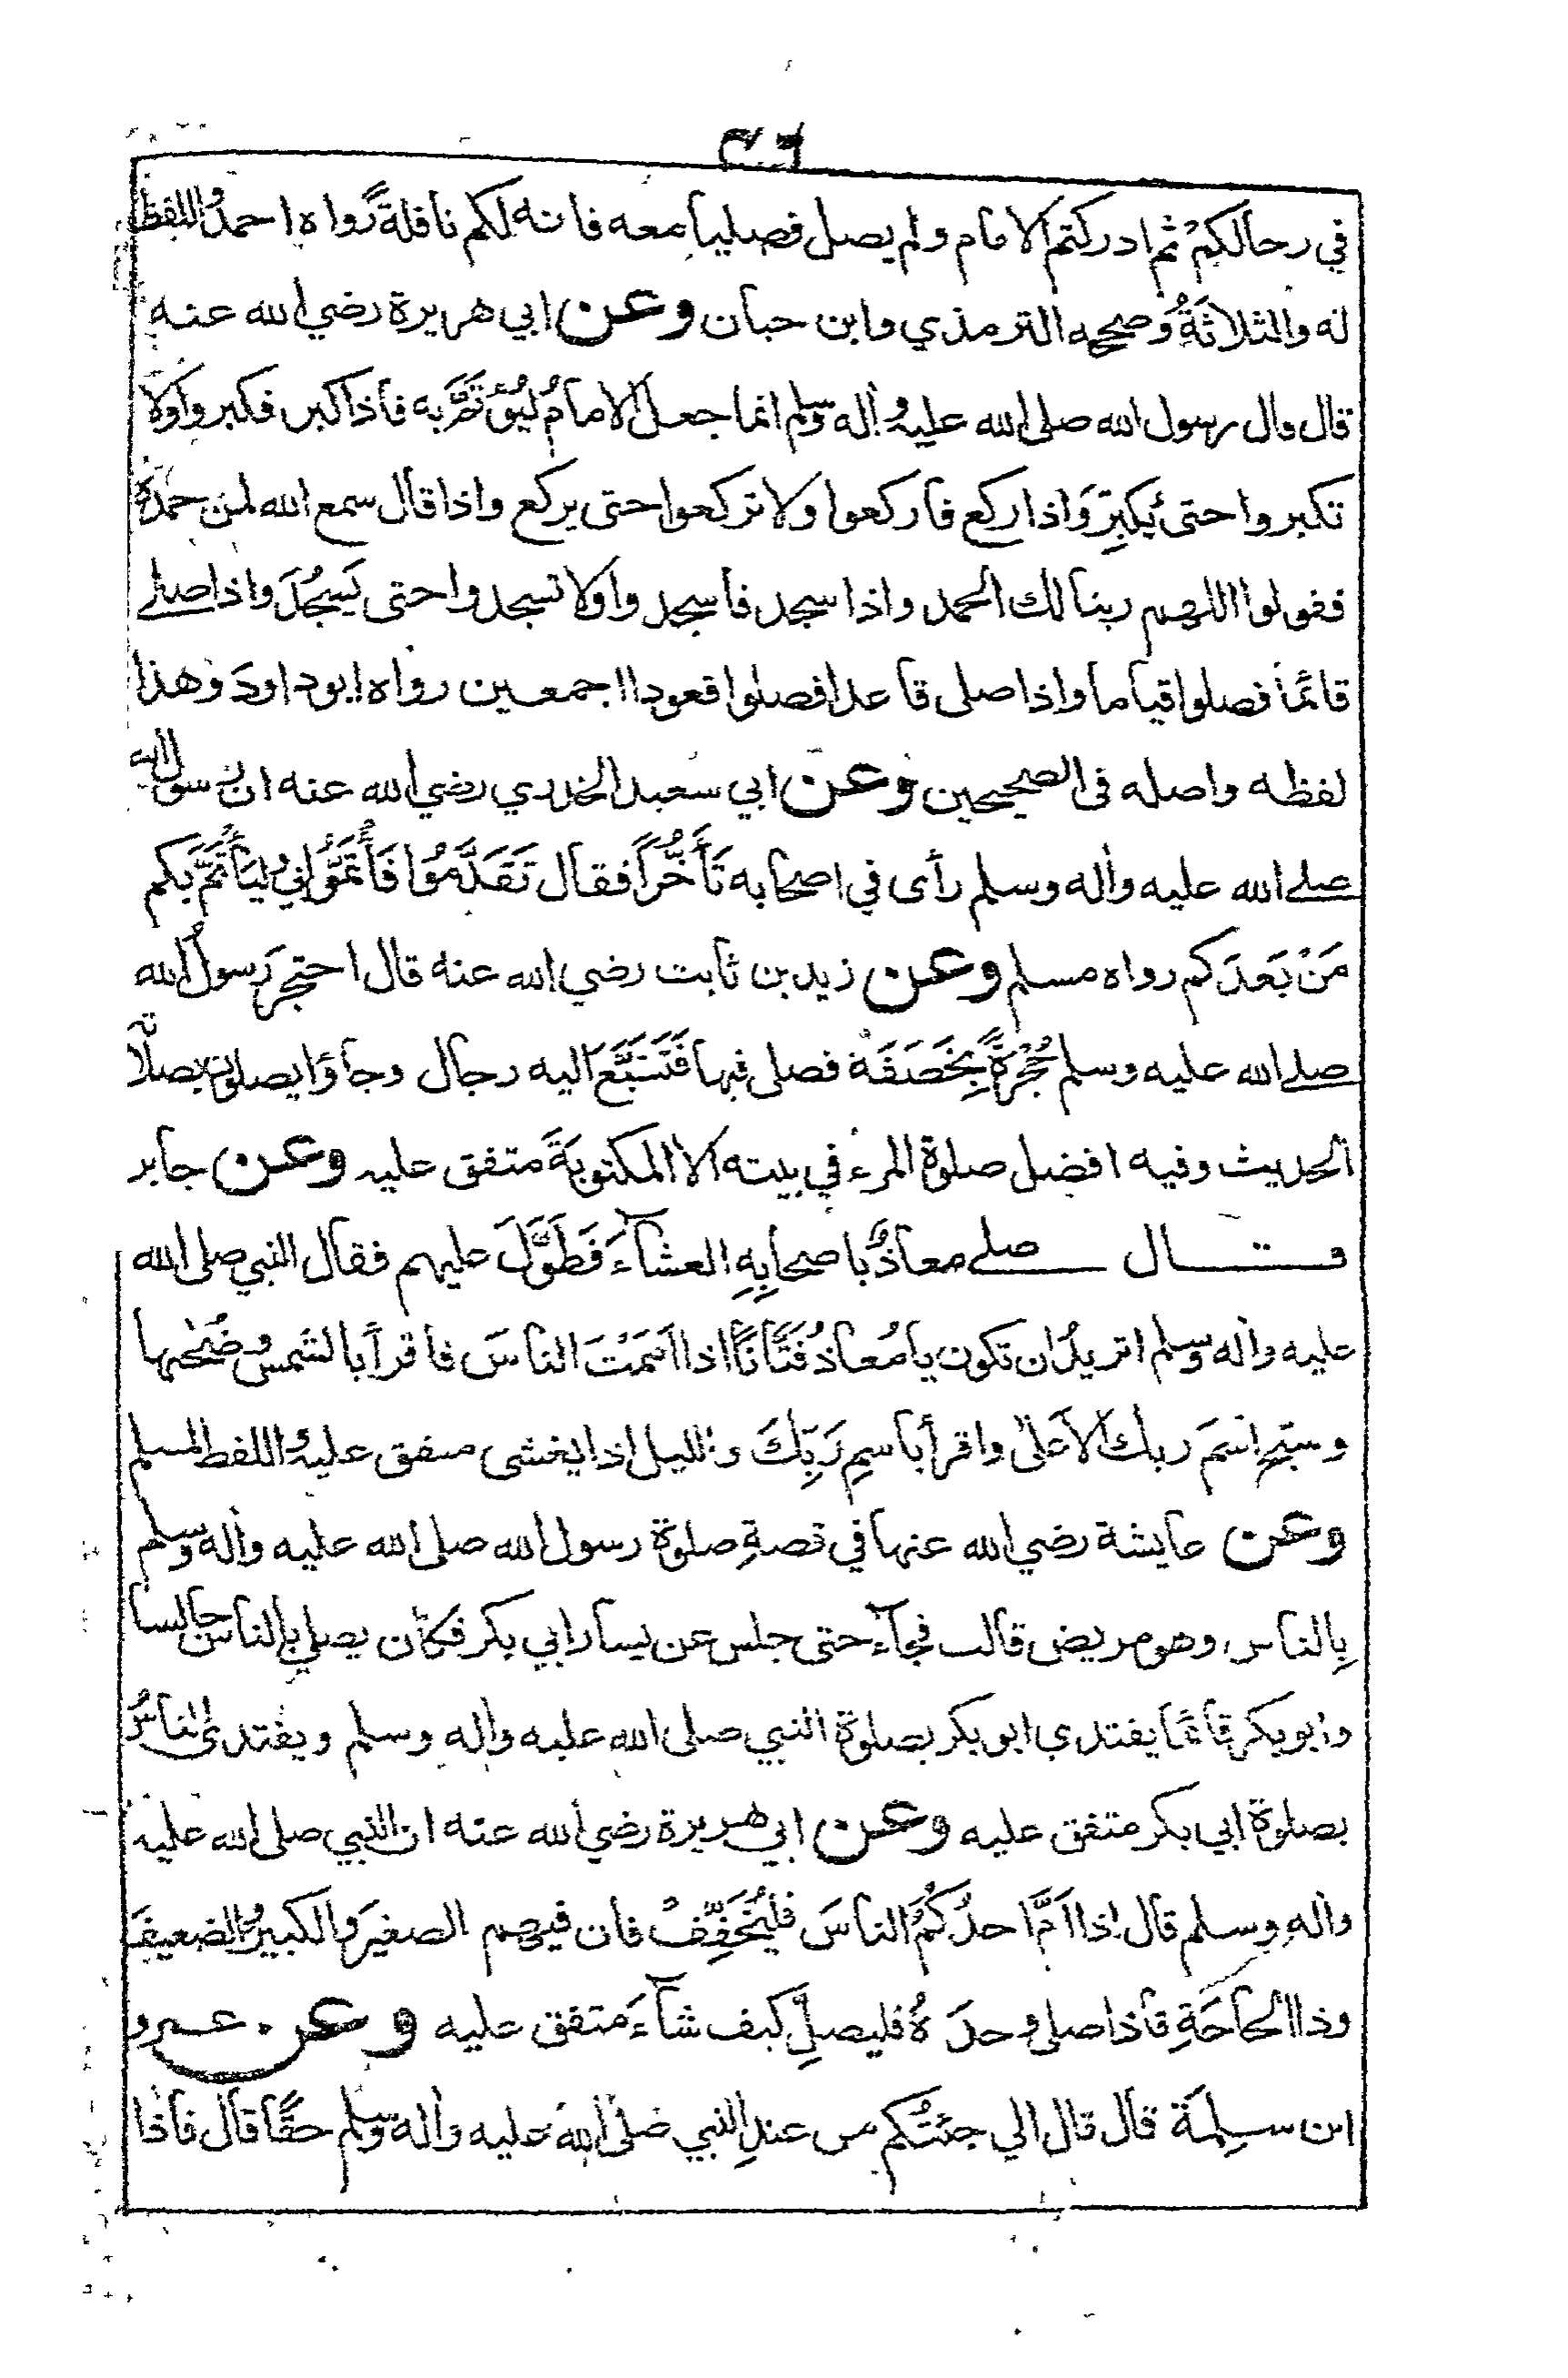 في رحالكم ثم ادركتم الامام ولم يصل فصليا معه فانه لكم نافلة رواه احمد واللفظ
له والثلاثة وصححه الترمذي وابن حبان وعن ابي هريرة رضي الله عنه
قال قال رسول الله صلى الله عليه واله وسلم انما جعل الامام ليؤتم به فاذا كبر فكبروا ولا
تكبروا حتى يكبر واذا ركع فاركعوا ولا تركعوا حتى يركع واذا قال سمع الله لمن حمده
فقولوا اللهم ربنا لك الحمد واذا سجد فاسجدوا ولا تسجدوا حتى يسجد واذا صلے
قائما فصلوا قياما واذا صلى قاعدا فصلوا قعودا اجمعين رواه ابوداود وهذا
لفظه واصله فى الصحيحين وعن ابي سعيد الخدري رضي الله عنه ان رسول الله
صلے الله عليه واٰله وسلم رأى في اصحابه تَأَخُّراً فقال تَقَدَّمُوا فَأْتَمُّوا بي وليَأْتَمَّ بكم
مَنْ بَعدَكم رواه مسلم وعن زيد بن ثابت رضي الله عنه قال احتجر رسولُ الله
صلے الله عليه وسلم حُجْرَةً بِخَصَفَة فصلى فيها فَتَتَبَّعَ اليه رجال وجاؤا يصلون بصلاته
الحديث وفيه افضل صلوة المرء في بيته الا المكتوبةَ متفق عليه وعن جابر
قال صلے معاذٌ باصحابِهِ العشآءَ فَطَوَّلَ عليهم فقال النبي صلى الله
عليه واٰله وسلم اتريدُ ان تكون يا مُعاذُ فَتَّانًا اذا اَمَمْتَ الناسَ فاقرأ بالشمس وضُحٰىها
وسبِّح اسْمَ ربك الاَعلىٰ واقرأ باسمِ رَبِّكَ والليل اذا يغشى متفق عليه واللفظ لمسلم
وعن عايشة رضي الله عنها في قصةِ صلوة رسول الله صلى الله عليه واٰله وسلم
بِالناس وهو مريض قالت فجآء حتى جلس عن يسار ابي بكر فكان يصلي بالناس جالسا
وابوبكر قائمًا يقتدي ابوبكر بصلوة النبي صلى الله عليه واله وسلم ويقتدى الناسُ
بصلوة ابي بكر متفق عليه وعن ابي هريرة رضي الله عنه ان النبي صلى الله عليه
واٰله وسلم قال اذا اَمَّ احدُكُمُ الناسَ فليُخَفِّفْ فان فيهم الصغيرَ والكبيرَ والضعيفَ
وذا الحاجَةِ فاذا صلى وحدَهُ فليصلِّ كيف شآءَ متفق عليه وعن عمرو
ابن سلِمَة قال قال ابي جئتُكم من عندِ النبي صلى الله عليه واٰله وسلم حقًّا قال فاذا